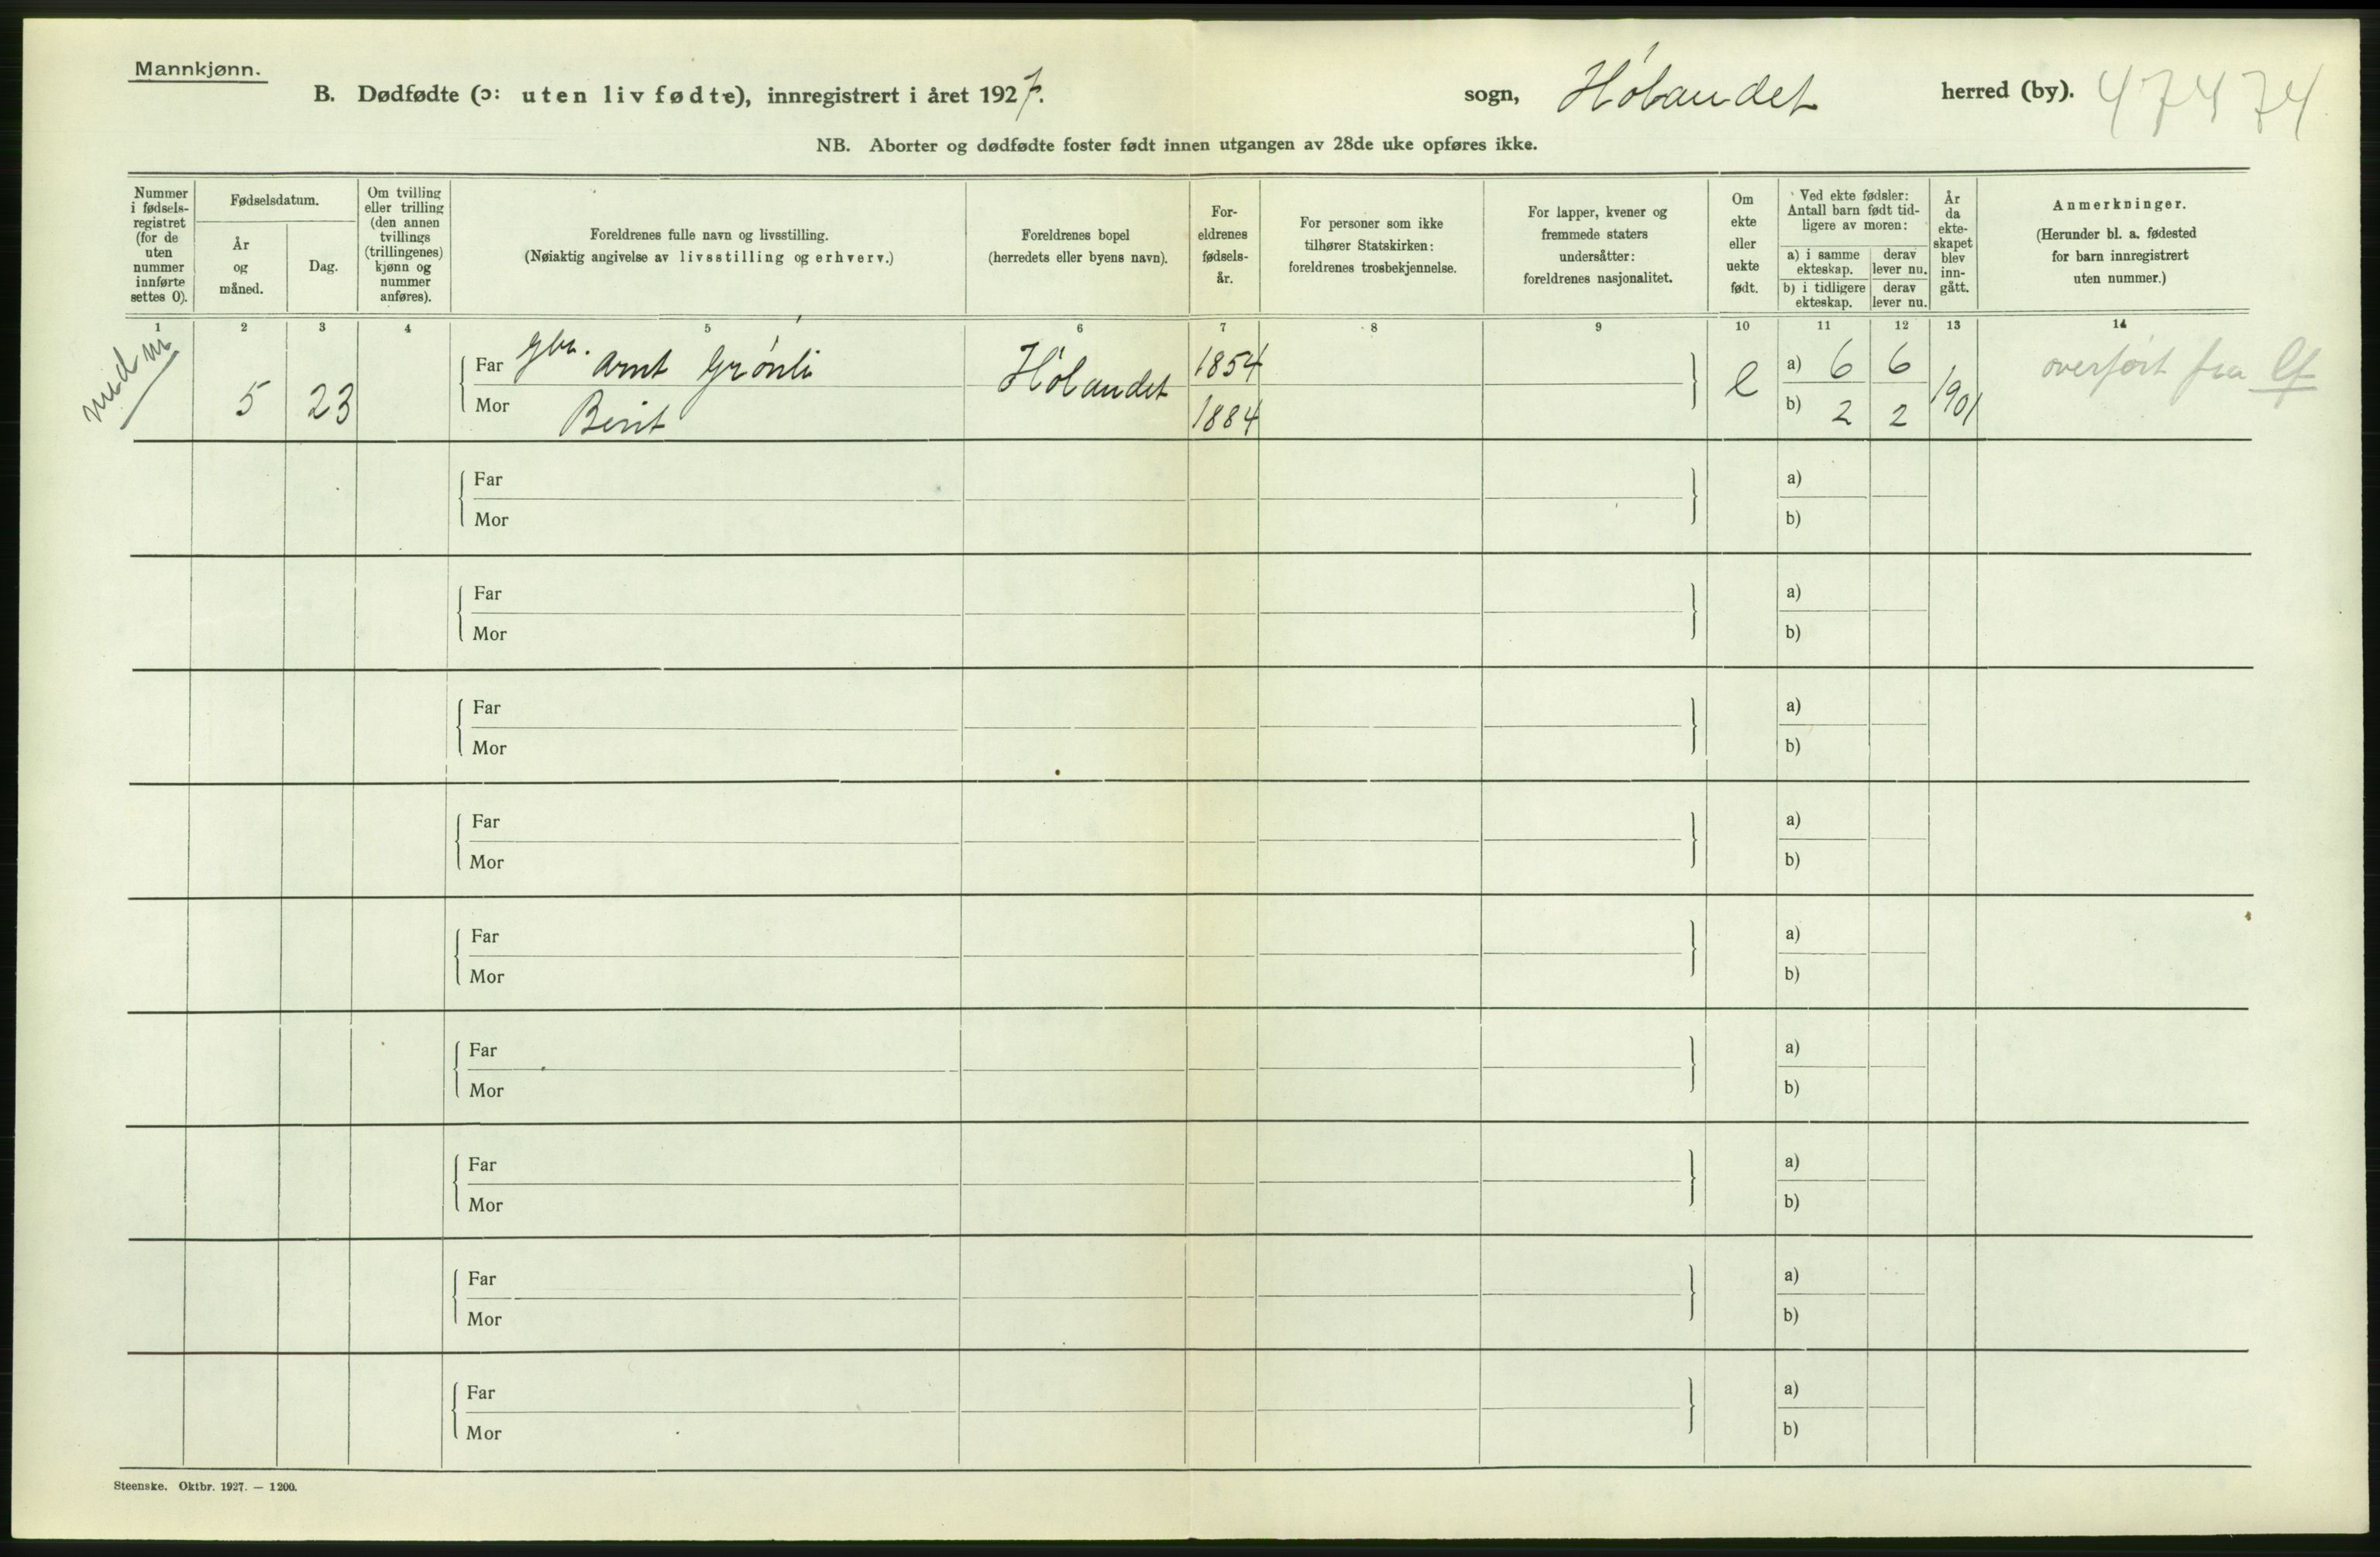 Mannkjønn.
B. Dødfødte (ɔ: uten liv fødte), innregistrert i året 1927. sogn, Høbandet herred (by). 47474
NB. Aborter og dødfødte foster født innen utgangen av 28de uke opføres ikke.
Nummer i fødsels-registret (for de uten nummer innførte settes 0).
Fødselsdatum.
År og måned.
Dag.
Om tvilling eller trilling (den annen tvillings (trillingenes) kjønn og nummer anføres).
Foreldrenes fulle navn og livsstilling.
(Nøiaktig angivelse av livsstilling og erhverv.)
Foreldrenes bopel
(herredets eller byens navn).
For-eldrenes fødsels-år.
For personer som ikke
tilhører Statskirken:
foreldrenes trosbekjennelse.
For lapper, kvener og
fremmede staters
undersåtter:
foreldrenes nasjonalitet.
Om ekte eller uekte født.
Ved ekte fødsler:
Antall barn født tid-
ligere av moren:
a) i samme ekteskap. derav lever nu.
b) i tidligere ekteskap. derav lever nu.
År da ekte-skapet blev inn-gått.
Anmerkninger.
(Herunder bl. a. fødested
for barn innregistrert
uten nummer.)
1 2 3 4 5 6 7 8 9 10 11 12 13 14
5 23 Far gbr. Arnt Grønli Høbandet 1854 e a) 6 6 1901 overført fra lf
Mor Berit 1884 b) 2 2
Far a)
Mor b)
Far a)
Mor b)
Far a)
Mor b)
Far a)
Mor b)
Far a)
Mor b)
Far a)
Mor b)
Far a)
Mor b)
Far a)
Mor b)
Far a)
Mor b)
Steenske. Oktbr. 1927. — 1200.